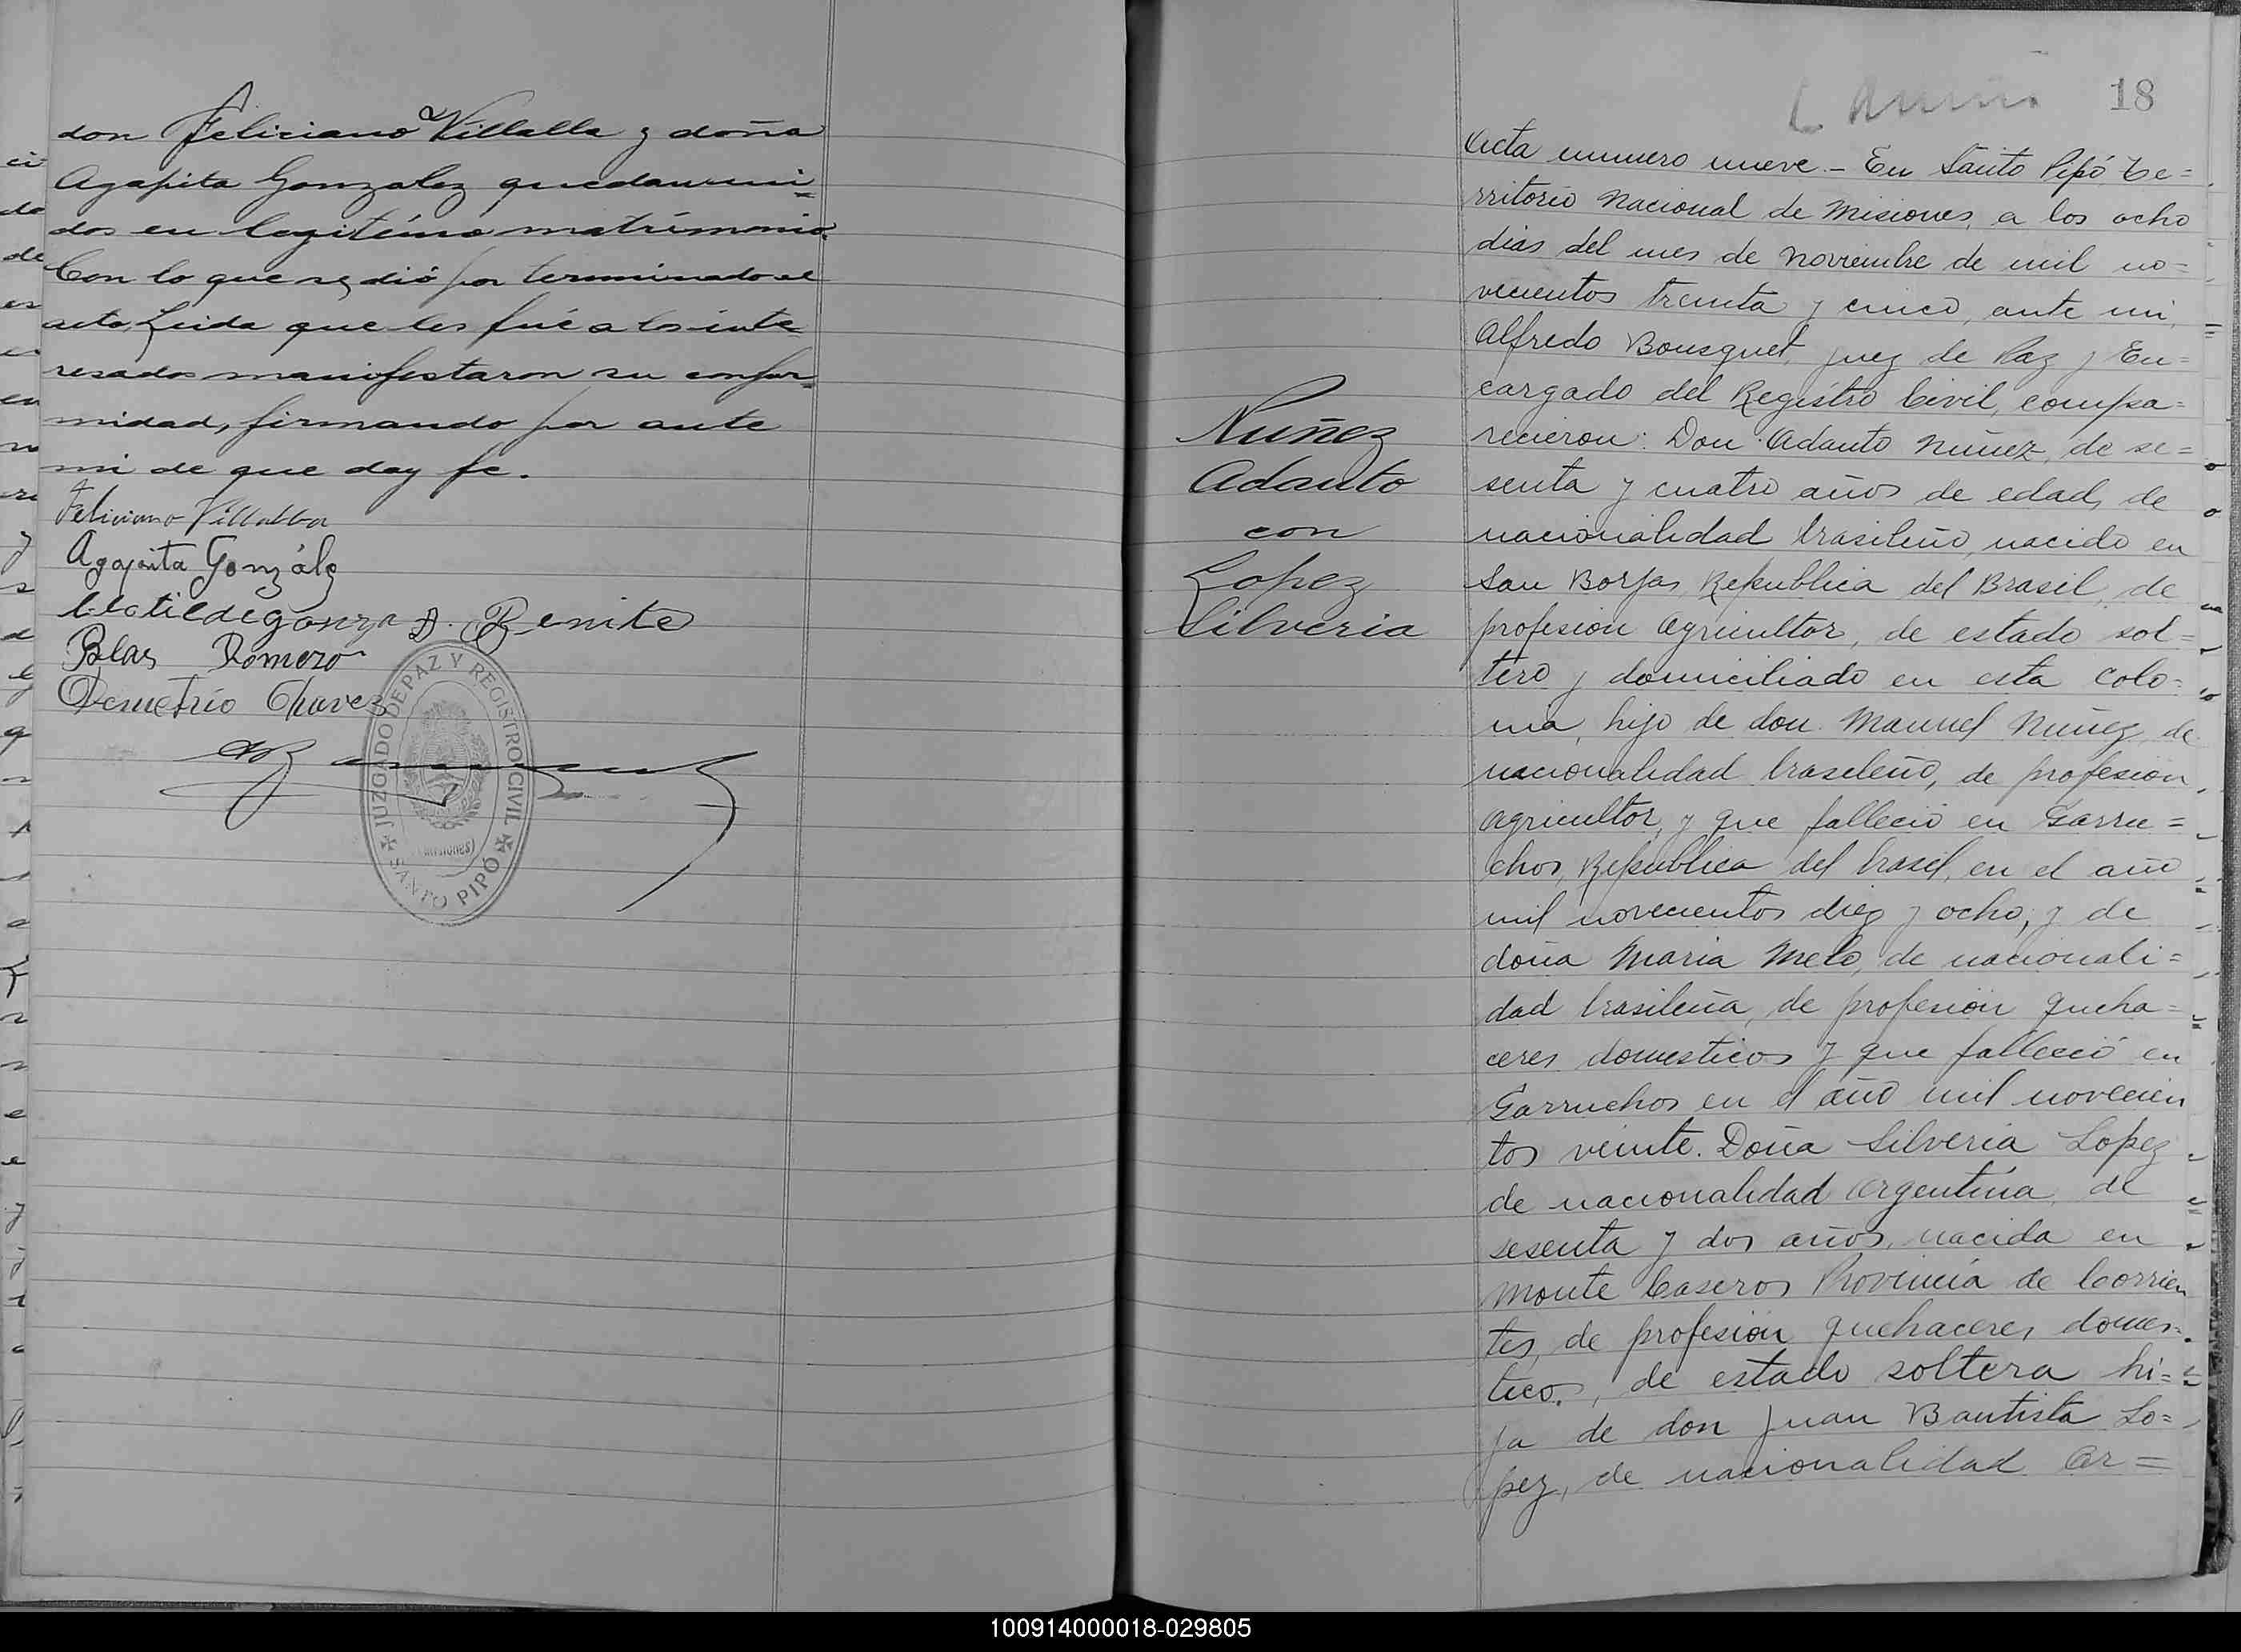 don Feliciano Villalba y doña
Agapita Gonzalez quedan uni=
dos en legitimo matrimonio.
Con lo que se dió por terminado el
acto, Leida que les fué a los inte=
resados manifestaron su confor=
midad, firmando por ante
mi de que doy fe.
Feliciano Villalba
Agapita Gonzálz
A. Benite
Blas Romero
Demetrio Chavez
JUZGADO DE PAZ Y REGISTRO CIVIL
(MISIONES)
SANTO PIPÓ
18
Nuñez
Adauto
con
Lopez
Silveria
Acta numero nueve.- En Santo Pipó Te=
rritorio Nacional de Misiones, a los ocho
dias del mes de Noviembre de mil no=
vecientos treinta y cinco, ante mi,
Alfredo Bousquet, Juez de Paz y En=
cargado del Registro Civil, compa=
recieron: Don Adauto Nuñez, de se=
senta y cuatro años de edad, de
nacionalidad brasileño, nacido en
San Borjas, Republica del Brasil, de
profesion Agricultor, de estado sol=
tero y domiciliado en esta Colo=
nia, hijo de don Manuel Nuñez, de
nacionalidad brasileño, de profesion
agricultor, y que falleció en Garru=
chos, Republica del brasil, en el año
mil novecientos diez y ocho; y de
doña Maria Melo, de nacionali=
dad brasileña, de profesion queha=
ceres domesticos y que falleció en
Garruchos en el año mil novecien
tos veinte. Doña Silveria Lopez
de nacionalidad argentina, de
sesenta y dos años, nacida en
Monte Caseros Provincia de Corrien
tes, de profesion quehaceres domes=
ticos, de estado soltera hi=
ja de don Juan Bautista Lo=
pez, de nacionalidad ar=
100914000018-029805